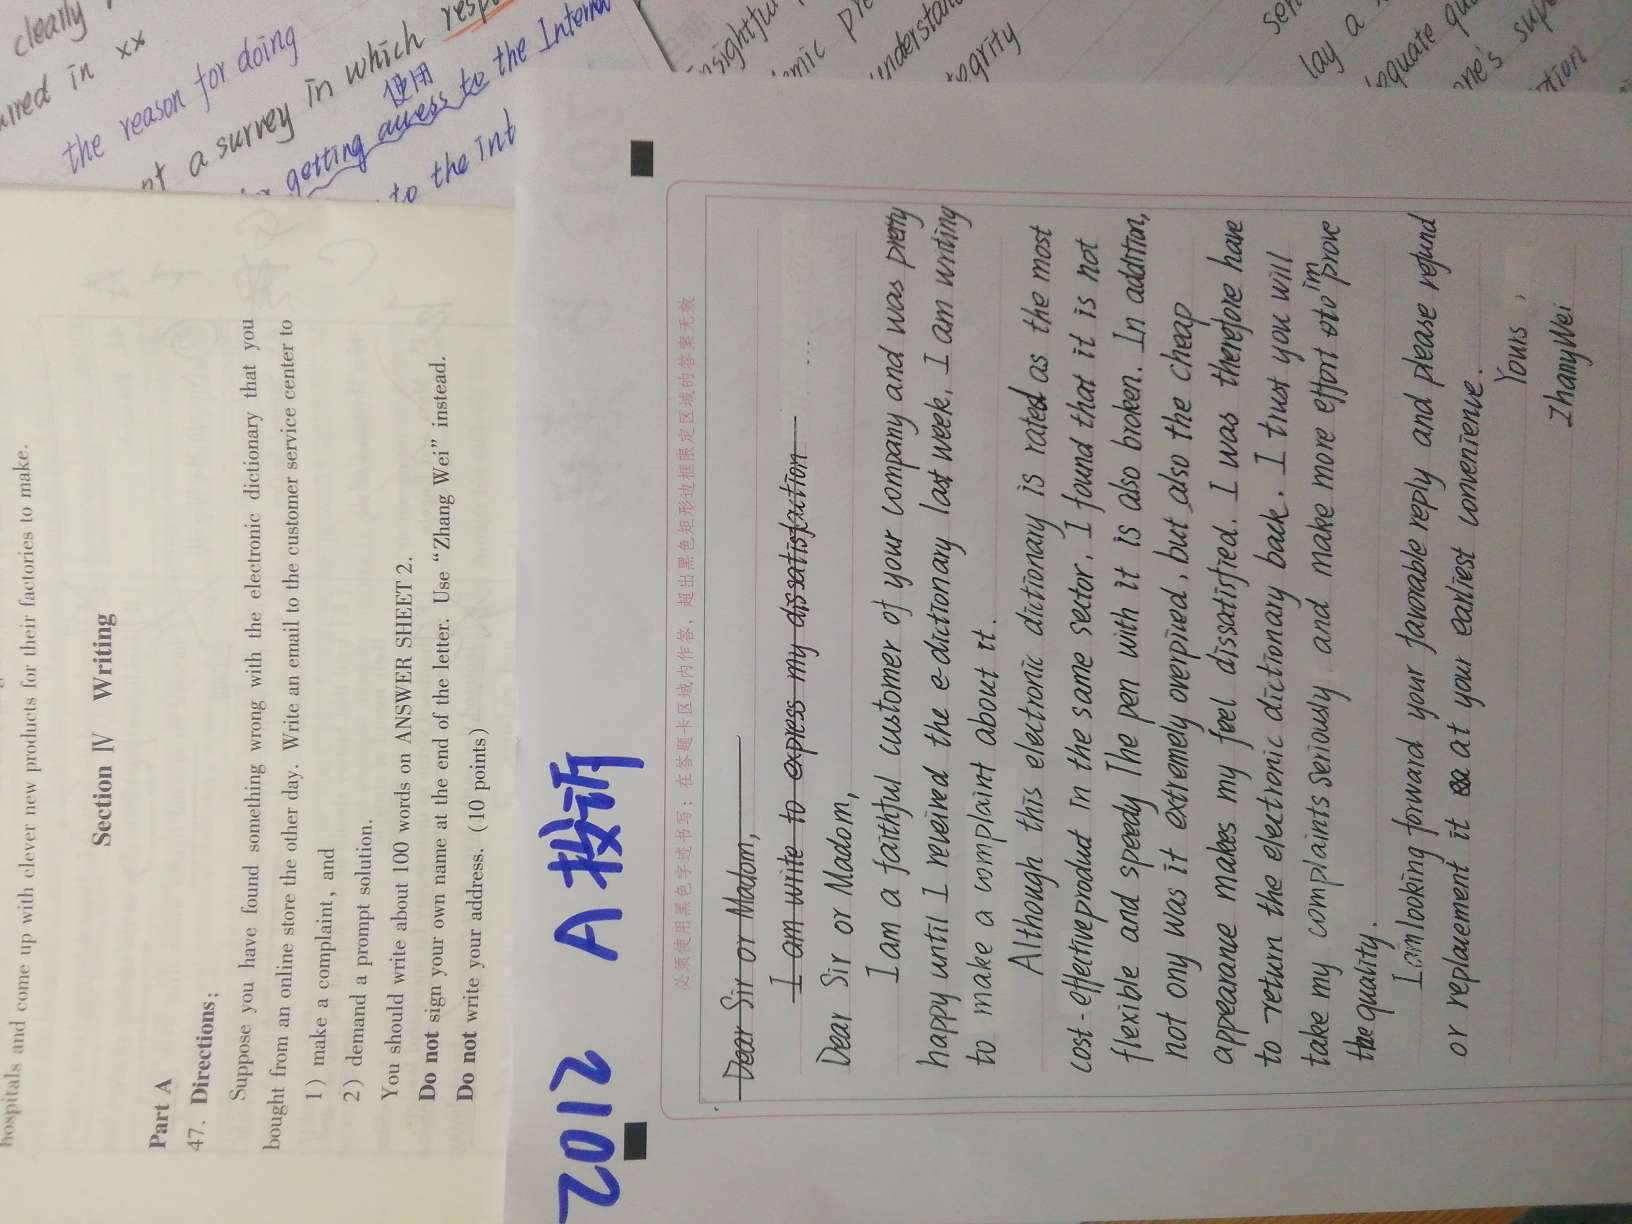 clearly
in xx
the reason for doing
a survey in which
使用
getting access to the Internet
to the Int
understand
lay a
equate
one's
hospitals and come up with clever new products for their factories to make.
Section Ⅳ Writing
Part A
47. Directions:
Suppose you have found something wrong with the electronic dictionary that you
bought from an online store the other day. Write an email to the customer service center to
1) make a complaint, and
2) demand a prompt solution.
You should write about 100 words on ANSWER SHEET 2.
Do not sign your own name at the end of the letter. Use “Zhang Wei” instead.
Do not write your address. (10 points)
2012 A 投诉
必须使用黑色字迹书写；在答题卡区域内作答，超出黑色矩形边框限定区域的答案无效
Dear Sir or Madom,
I am write to express my dissatisfaction
Dear Sir or Madom,
I am a faithful customer of your company and was pretty
happy until I reveived the e-dictionary last week. I am writing
to make a complaint about it.
Although this electronic dictionary is rated as the most
cost-effective product in the same sector, I found that it is not
flexible and speedy The pen with it is also broken. In addition,
not ony was it extremely overpived, but also the cheap
appearance makes my feel dissatisfied. I was therefore have
to return the electronic dictionary back. I trust you will
take my complaints seriously and make more effort to improve
the quality.
I am looking forward your favorable reply and please refund
or replacement it at your earliest convenience.
Yours,
Zhang Wei